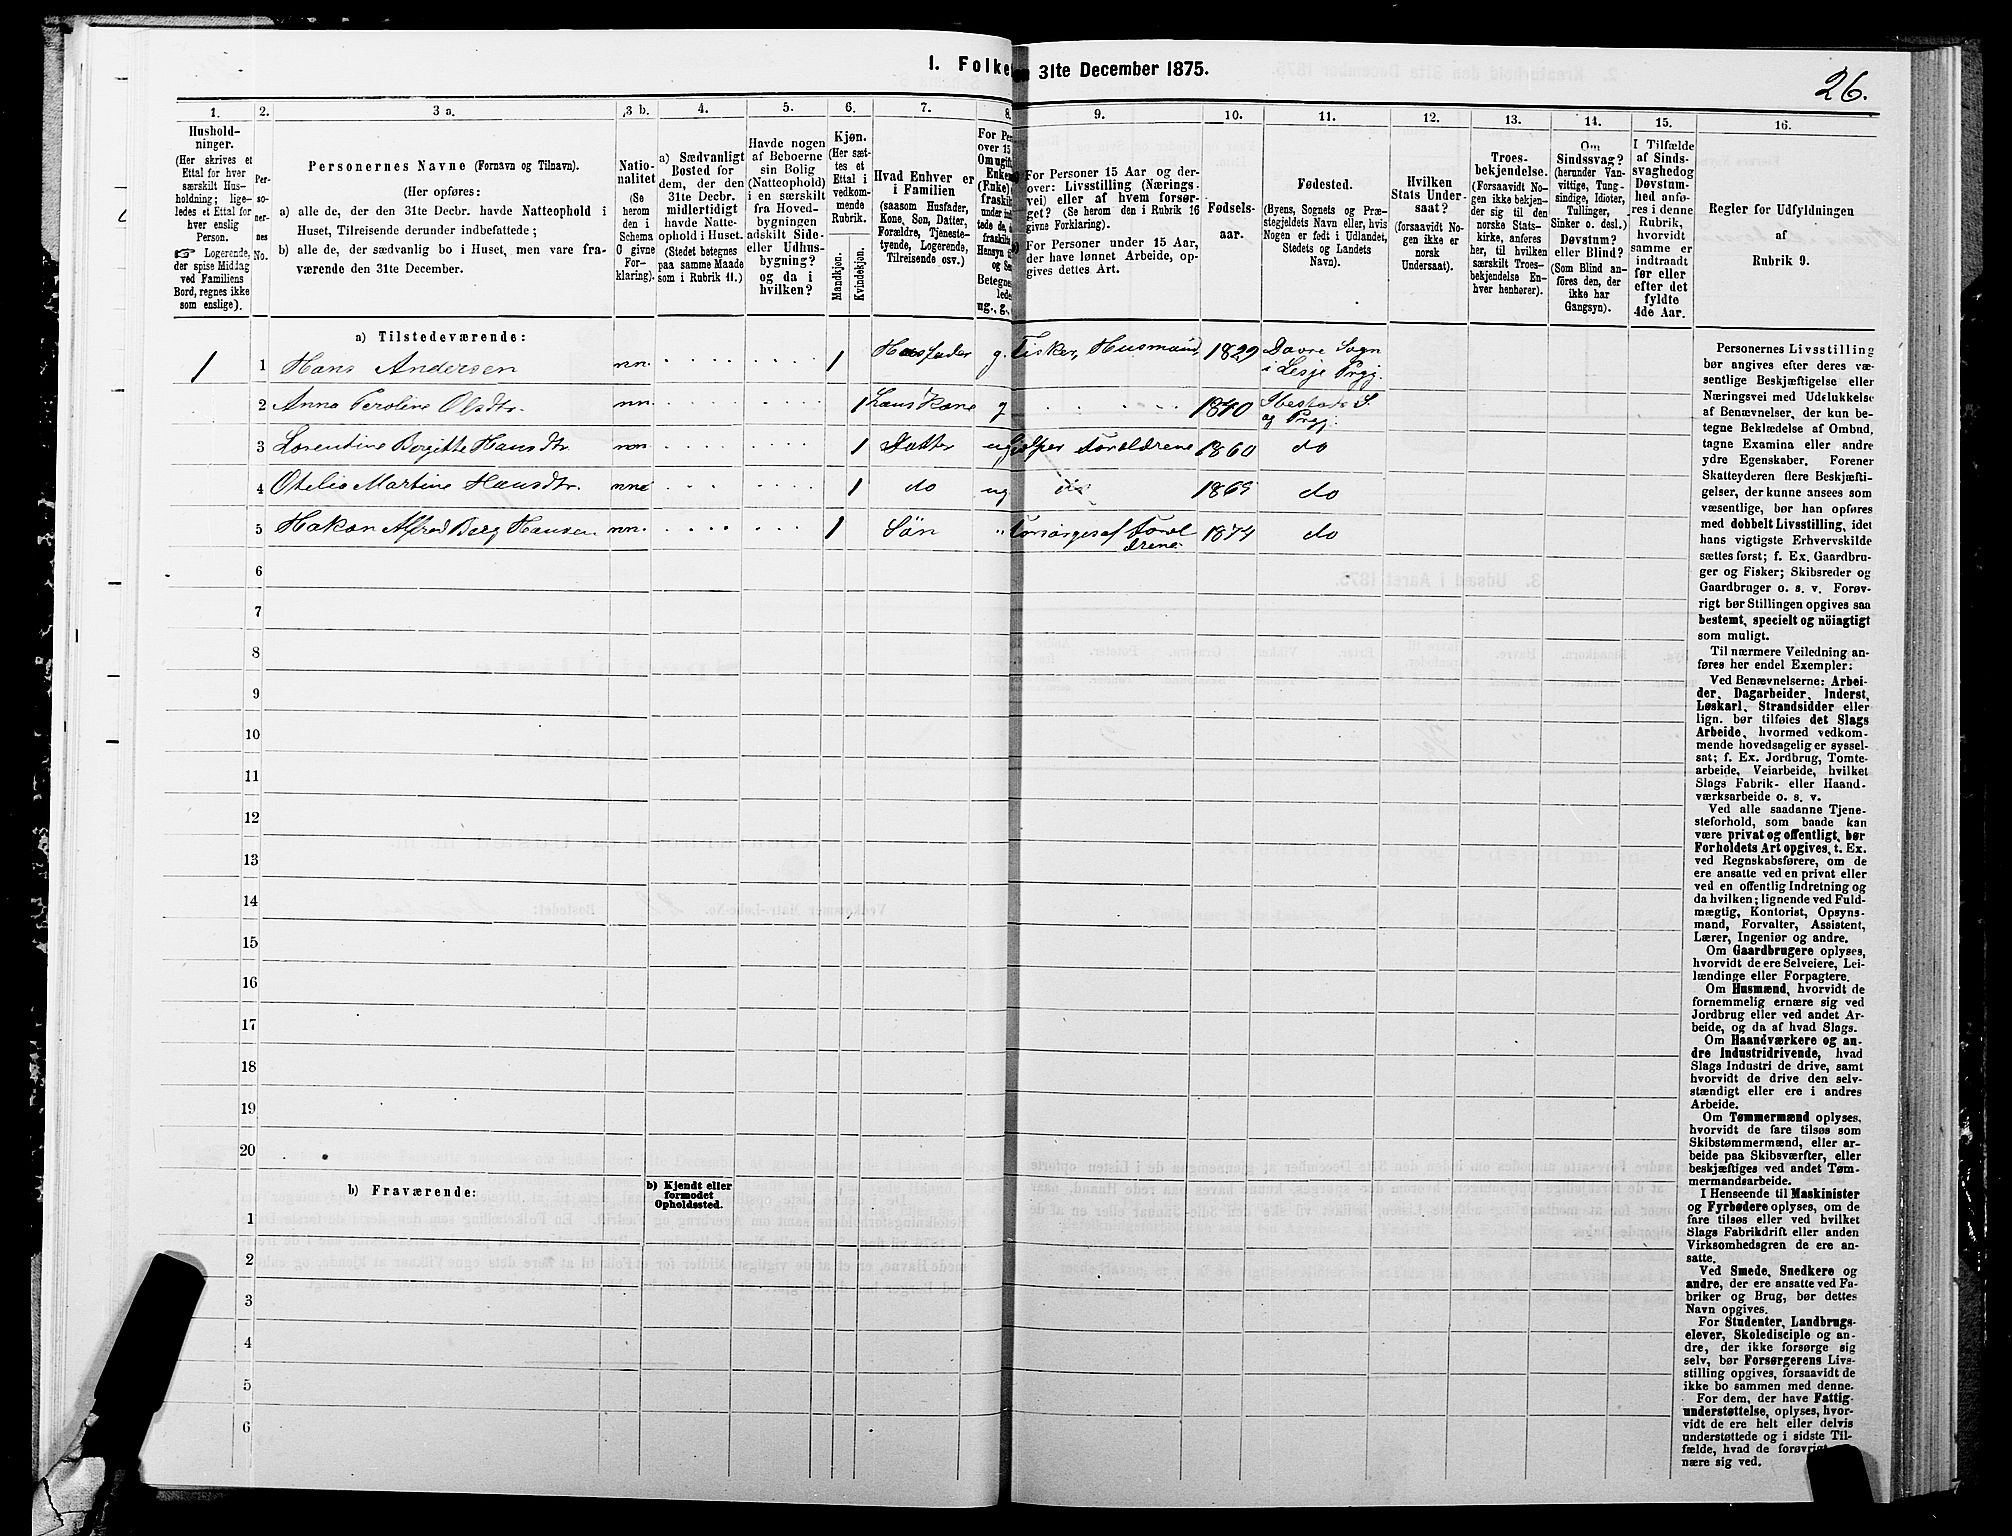 1. Folke
31te December 1875.
26.
1.
2.
3 a.
3 b.
4.
5.
6.
7.
8.
9.
10.
11.
12.
13.
14.
15.
16.
Hushold-
ninger.
(Her skrives et
Ettal for hver
særskilt Hus-
holdning; lige-
ledes et Ettal for
hver enslig
Person.
☞ Logerende,
der spise Middag
ved Familiens
Bord, regnes ikke
som enslige).
Per-
so-
ner-
nes
No.
Personernes Navne (Fornavn og Tilnavn).
(Her opføres:
a) alle de, der den 31te Decbr. havde Natteophold i
Huset, Tilreisende derunder indbefattede;
b) alle de, der sædvanlig bo i Huset, men vare fra-
værende den 31te December.
Natio-
nalitet
(Se
herom
den i
Schema
O givne
For-
klaring).
a) Sædvanligt
Bosted for
dem, der den
31te Decbr.
midlertidigt
havde Natte-
ophold i Huset.
(Stedet betegnes
paa samme Maade
som i Rubrik 11.)
Havde nogen
af Beboerne
sin Bolig
(Natteophold)
i en særskilt
fra Hoved-
bygningen
adskilt Side-
eller Udhus-
bygning?
og da i
hvilken?
Kjøn.
(Her sæt-
tes et
Ettal i
vedkom-
mende
Rubrik.
Mandkjøn.
Kvindekjøn.
Hvad Enhver er
i Familien
(saasom Husfader,
Kone, Søn, Datter,
Forældre, Tjeneste-
tyende, Logerende,
Tilreisende osv.)
For Per
over 15
Om ugift
Enke
(Enke)
fraskilt
under ind
tede de,
fraskilt
Hensyn
og Se
Betegne
lede
ug., g.,
For Personer 15 Aar og der-
over: Livsstilling (Nærings-
vei) eller af hvem forsør-
get? (Se herom den i Rubrik 16
givne Forklaring).
For Personer under 15 Aar,
der have lønnet Arbeide, op-
gives dettes Art.
Fødsels-
aar.
Fødested.
(Byens, Sognets og Præ-
stegjeldets Navn eller, hvis
Nogen er født i Udlandet,
Stedets og Landets
Navn).
Hvilken
Stats Under-
saat?
(forsaavidt No-
gen ikke er
norsk
Undersaat).
Troes-
bekjendelse.
(Forsaavidt No-
gen ikke bekjen-
der sig til den
norske Stats-
kirke, anføres
her, til hvilken
særskilt Troes-
bekjendelse En-
hver henhører).
Om
Sindssvag?
(herunder Van-
vittige, Tung-
sindige, Idioter,
Tullinger,
Sinker o. desl.)
Døvstum?
eller Blind?
(Som Blind an-
føres den, der
ikke har
Gangsyn).
I Tilfælde
af Sinds-
svaghed og
Døvstum-
hed anfø-
res i denne
Rubrik,
hvorvidt
samme er
indtraadt
før eller
efter det
fyldte
4de Aar.
Regler for Udfyldningen
af
Rubrik 9.
a) Tilstedeværende:
1 1 Hans Andersen nn. 1 Husfader g. Fisker, Husmand, 1829 Dovre Sogn
i Lesje Prgj.
2 Anna Peroline Olsdtr. nn. 1 hans Kone g 1840 Ibestads S.
og Prgj.
3 Lorentine Birgitte Hansdtr. nn 1 Datter ug hjelper Forældrene 1860 do
4 Otelia Martine Hansdtr. nn 1 do ug 1865 do
5 Hakon Alfred Berg Hansen nn. 1 Søn " Forsørges af Foræl
drene 1874 do
6
7
8
9
10
11
12
13
14
15
16
17
18
19
20
b) Fraværende:
b) Kjendt eller
formodet
Opholdssted.
1
2
3
4
5
6
Personernes Livsstilling
bør angives efter deres væ-
sentlige Beskjæftigelse eller
Næringsvei med Udelukkelse
af Benævnelser, der kun be-
tegne Beklædelse af Ombud,
tagne Examina eller andre
ydre Egenskaber. Forener
Skatteyderen flere Beskjæfti-
gelser, der kunne ansees som
væsentlige, bør han opføres
med dobbelt Livsstilling, idet
hans vigtigste Erhvervskilde
sættes først; f. Ex. Gaardbru-
ger og Fisker; Skibsreder og
Gaardbruger o. s. v. Forøv-
rigt bør Stillingen opgives saa
bestemt, specielt og nöiagtigt
som muligt.
Til nærmere Veiledning an-
føres her endel Exempler:
Ved Benævnelserne: Arbei-
der, Dagarbeider, Inderst,
Løskarl, Strandsidder eller
lign. bør tilføies det Slags
Arbeide, hvormed vedkom-
mende hovedsagelig er syssel-
sat; f. Ex. Jordbrug, Tomte-
arbeide, Veiarbeide, hvilket
Slags Fabrik- eller Haand-
værksarbeide o. s. v.
Ved alle saadanne Tjene-
steforhold, som baade kan
være privat og offentligt, bør
Forholdets Art opgives, t. Ex.
ved Regnskabsførere, om de
ere ansatte ved en privat eller
ved en offentlig Indretning og
da hvilken; lignende ved Fuld-
mægtig, Kontorist, Opsyns-
mand, Forvalter, Assistent,
Lærer, Ingeniør og andre.
Om Gaardbrugere oplyses,
hvorvidt de ere Selveiere, Lei-
lændinge eller Forpagtere.
Om Husmænd, hvorvidt de
fornemmelig ernære sig ved
Jordbrug eller ved andet Ar-
beide, og da af hvad Slags.
Om Haandværkere og an-
dre Industridrivende, hvad
Slags Industri de drive, samt
hvorvidt de drive den selv-
stændigt eller ere i andres
Arbeide.
Om Tømmermænd oplyses,
hvorvidt de fare tilsøs som
Skibstømmermænd, eller ar-
beide paa Skibsværfter, eller
beskjæftiges ved andet Tøm-
mermandsarbeide.
I Henseende til Maskinister
og Fyrbødere oplyses, om de
fare tilsøs eller ved hvilket
Slags Fabrikdrift eller anden
Virksomhedsgren de ere an-
satte.
Ved Smede, Snedkere og
andre, der ere ansatte ved Fa-
briker og Brug, bør dettes
Navn opgives.
For Studenter, Landbrugs-
elever, Skoledisciple og an-
dre, der ikke forsørge sig
selv, bør Forsørgerens Livs-
stilling opgives, forsaavidt de
ikke bo sammen med denne.
For dem, der have Fattig-
understøttelse, oplyses, hvor-
vidt de ere helt eller delvis
understøttede og i sidste Til-
fælde, hvad de forøvrigt
nære sig ved.